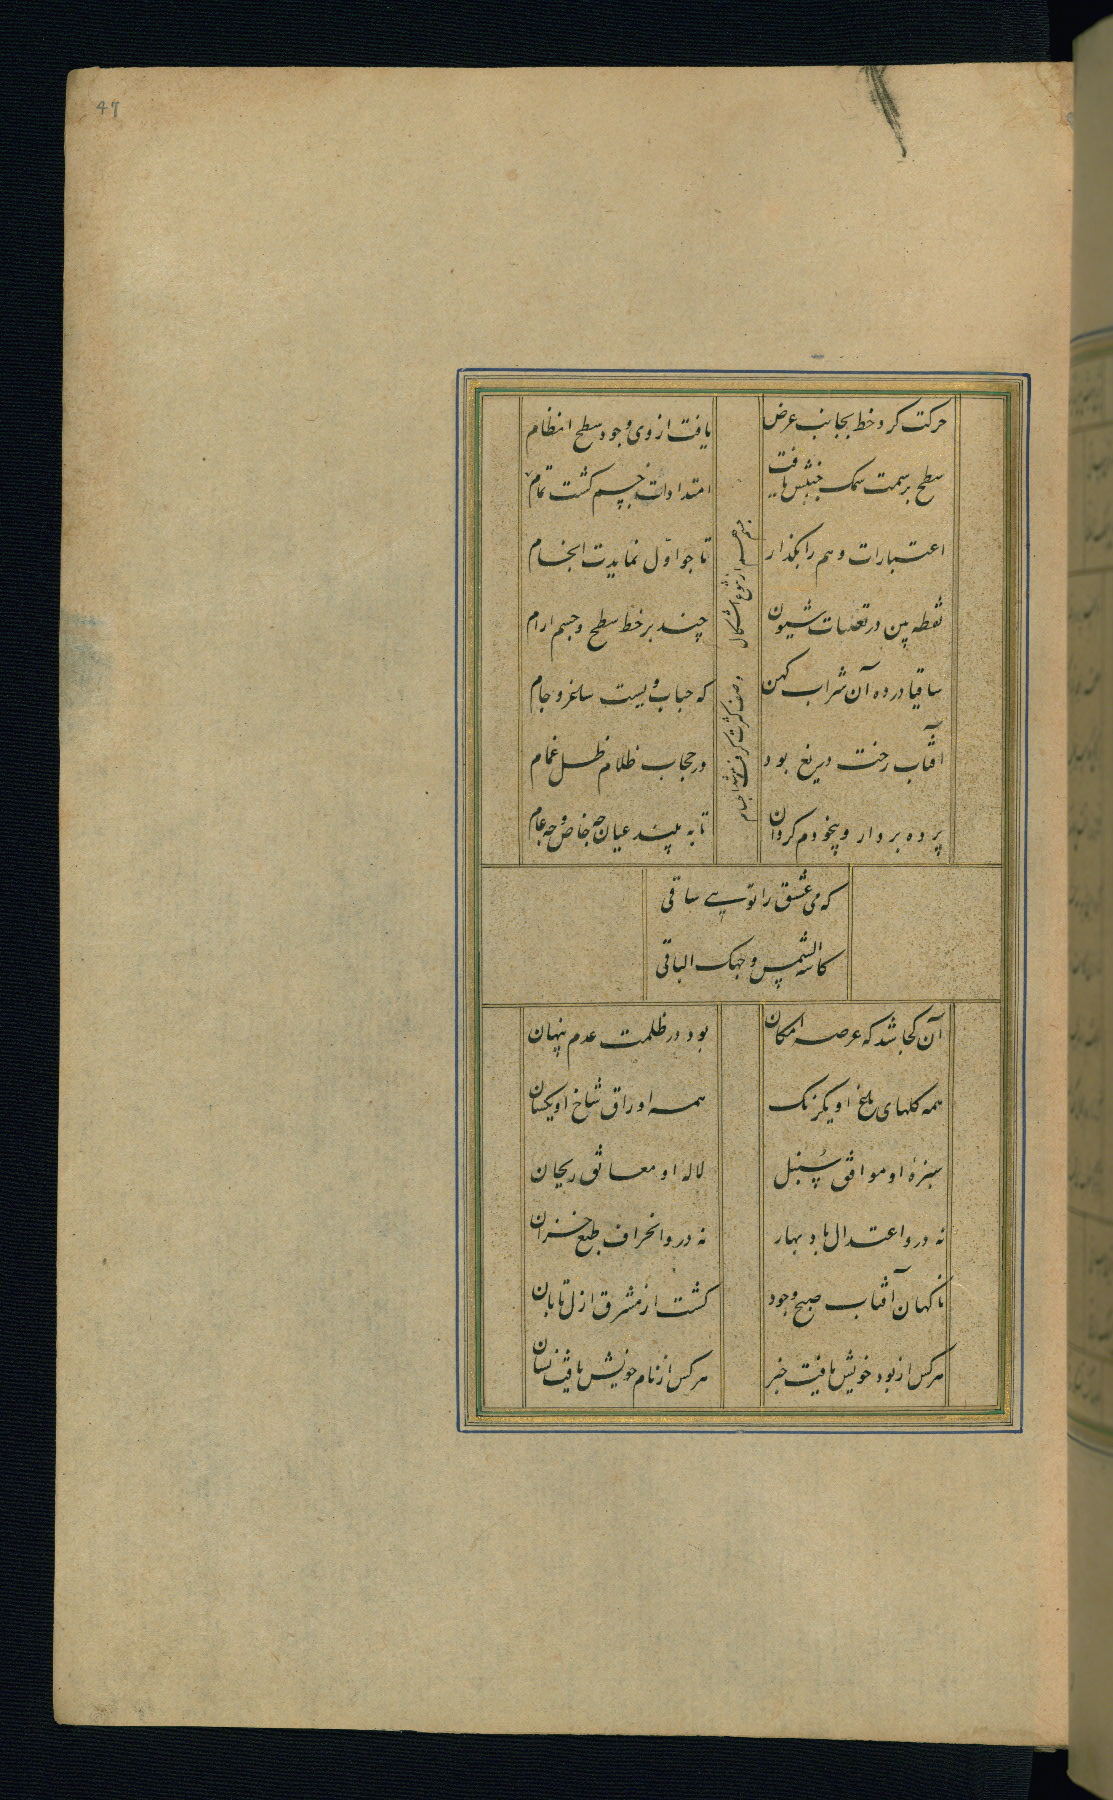 47
حرکت کرد خط بجانب عرض
یافت از وی وجود سطح انتظام
سطح بر سمت سمک جنبش یافت
امتدادات جسم کشت تمام
اعتبارات وهم را بکذار
تا جو اول نمایدت انجام
نقطه بین در تقلبات شیون
چند بر خط و سطح و جسم ارام
ساقیا در ده آن شراب کهن
که حباب ویست ساغر و جام
آفتاب رخت دریغ بود
در حجاب ظلام ظل غمام
پرده بردار و بیخودم کردان
تا به بیند عیان چه خاص و چه عام
هم از تنوع اشکال
وصف کثرت کرفت شد اجسام
که می عشق را تویی ساقی
کاسه الشمس وجهک الباقی
آن کجا شد که عرصه امکان
بود در ظلمت عدم پنهان
همه کلهای باغ او یکرنک
همه اوراق شاخ او یکسان
سبزهٔ او موافق سنبل
لاله او معانق ریحان
نه درو اعتدال باد بهار
نه درو انحراف طبع خزان
ناکهان آفتاب صبح وجود
کشت از مشرق ازل تابان
هرکس از بود خویش یافت خبر
هرکس از نام خویش یافت نشان